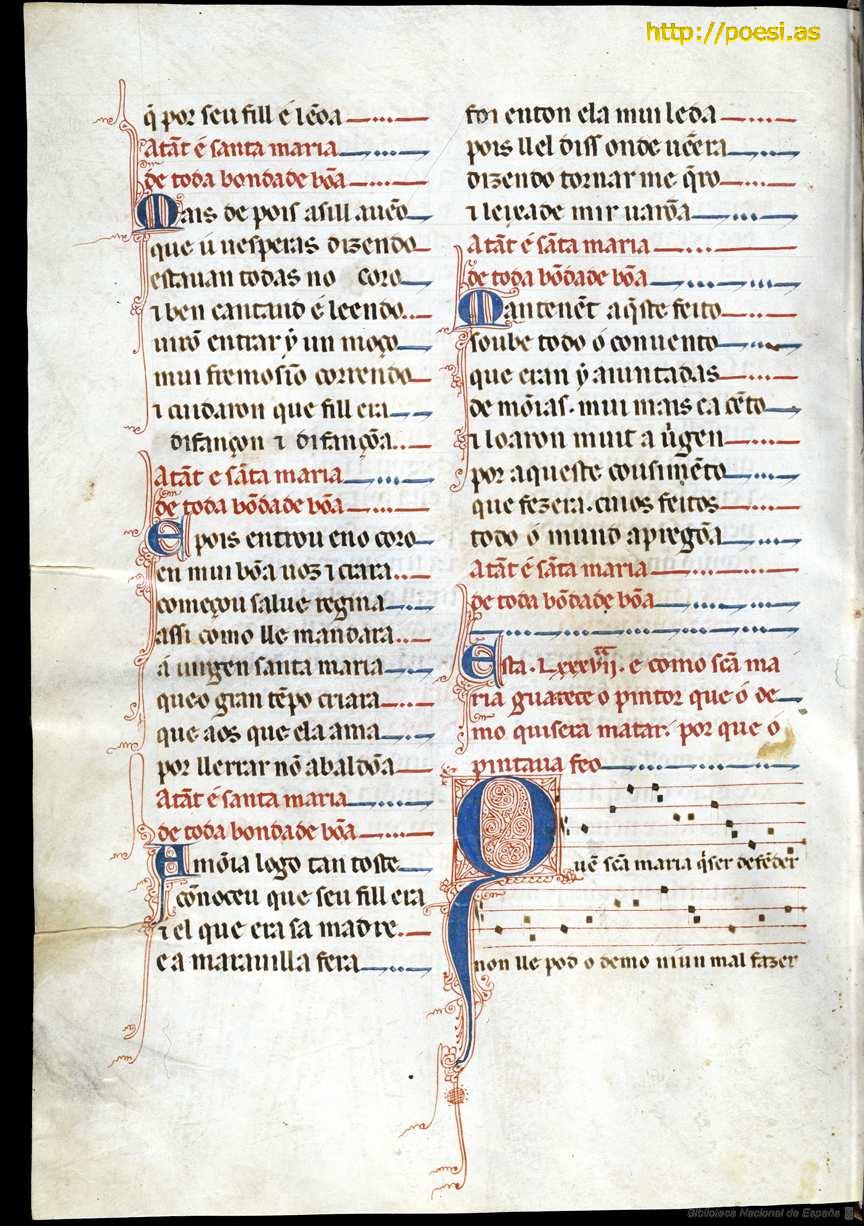 http://poesi.as
q̄ por seu fill é lẽoa
Atãt é santa maria
de toda bondade bõa
Mais de pois assi auẽo
que ú uesperas dizendo
estauan todas no coro
⁊ ben cantand é leendo
uirõ entrar ẏ un moço
mui fremosĩo correndo
⁊ cuidaron que fill era
difançon ⁊ difançõa
Atãt e sãta maria
de toda bõdade bõa
E pois entrou eno coro
en mui bõa uoz ⁊ crara
começou salue regina
assi como lle mandara
á uirgen santa maria
queo gran tẽpo criara
que aos que ela ama
por llerrar nõ abaldõa
Atãt é santa maria
de toda bondade bõa
A mõia logo tan toste
cõnoceu que seu fill era
⁊ el que era sa madre
e a marauilla fera
foi enton ela mui leda
pois ll el diss onde uẽera
dizendo tornar me q̃ro
⁊ leixade mir uarõa
Atãt é sãta maria
de toda bõdade bõa
Mantenẽt aq̃ste feito
soube todo ó conuento
que eran ẏ aiuntadas
de mõias. mui mais ca cẽto
⁊ loaron muit a uirgen
por aqueste cousimẽto
que fezera. cuios feitos
todo ó mund apregõa
Atãt é sãta maria
de toda bõdade bõa
Esta .Lxxxviiª. e como scã ma
ria guareceo o pintor que ó de
mo quisera matar. por que ó
pintaua feo
Quẽ scã maria q̃ser defẽder
non lle pod o demo niun mal fazer
Biblioteca Nacional de España